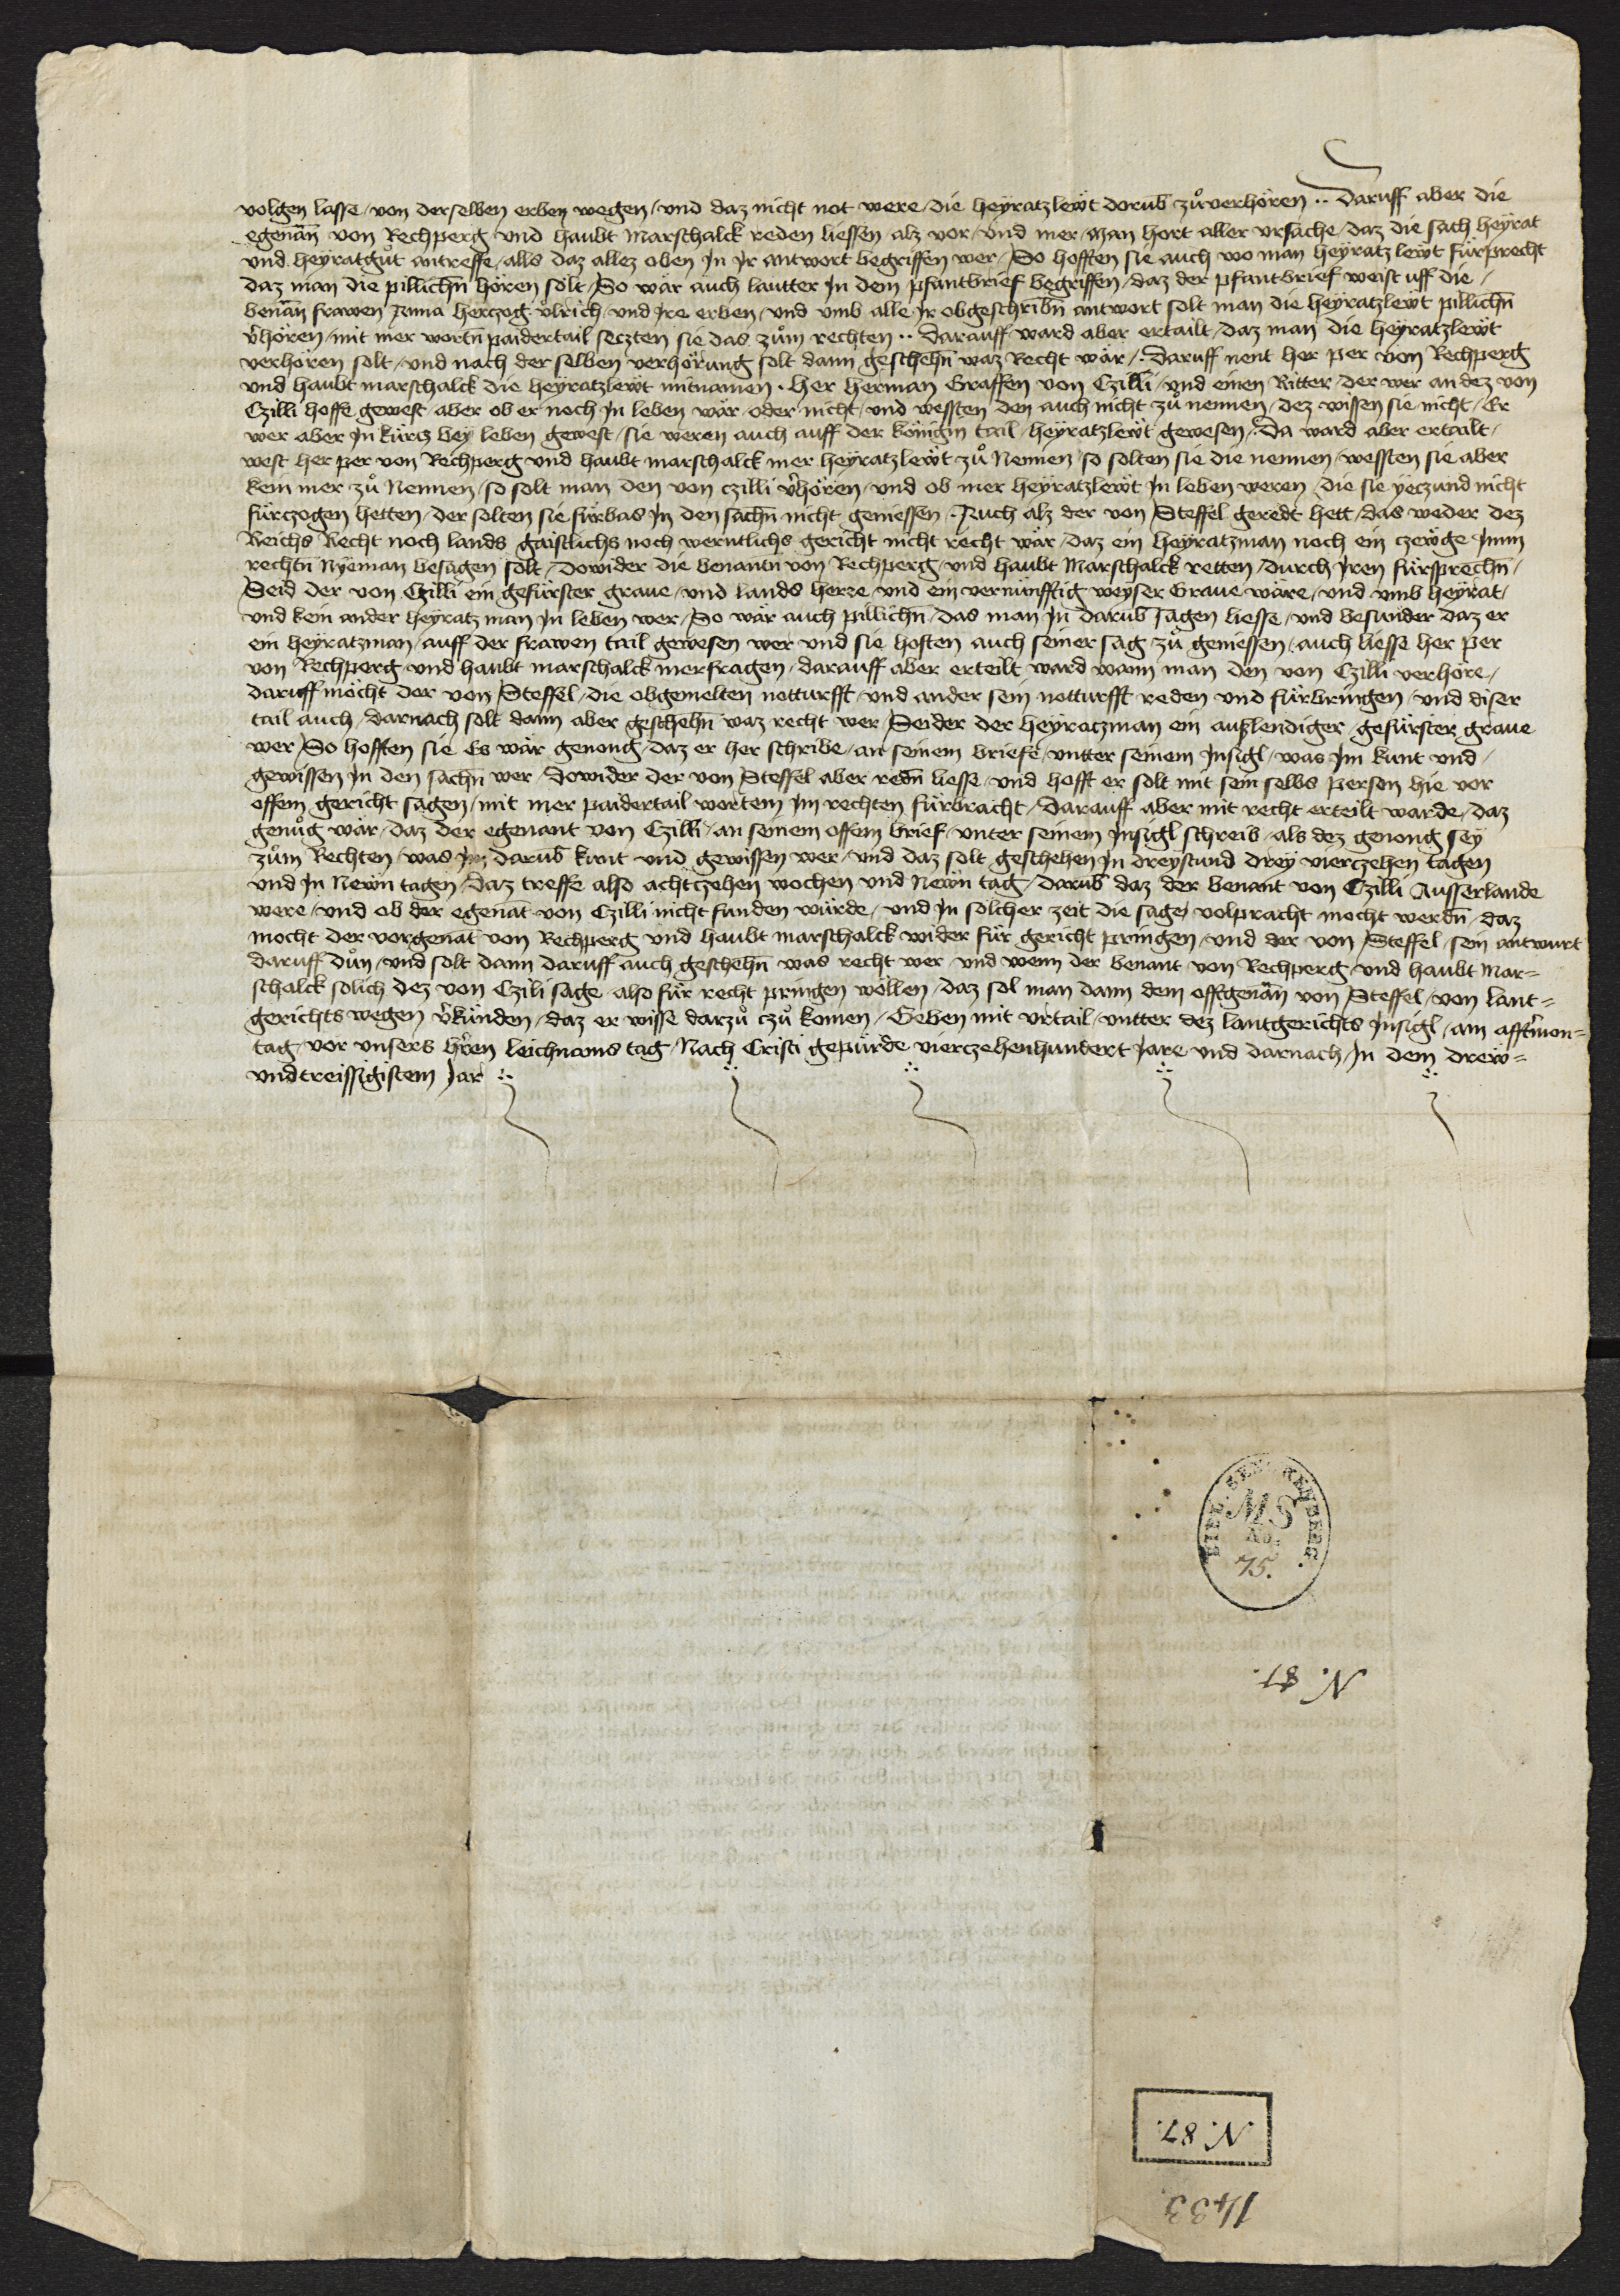 volgen lasse / von derselben erben wegen / vnd daz nicht not were / die heyratzlewt dorub zůuerhören ·· Daruff aber die
egenan̄ von Rechperg vnd haubt Marschalck reden liessen alz vor / vnd mer / man hort aller vrsache / daz die sach heyrat
vnd heyratgůt antreffe / alls daz allez oben Jn Jr antwort begriffen wer / So hofften sie auch wo man heyratz lewt fürprecht
daz man die pillichn̄ hören solt / So wär auch lautter Jn dem pfantbrief begriffen / daz der pfantbrief weist uff die /
benan̄ frawen Anna herczog vlrich / vnd Jre erben / vnd vmb alle Jr obgeschribn̄ antwort solt man die heyratzlewt pillichn̄
v̾hören / mit mer wortn̄ paidertail seczten sie das zům rechten ·· Darauff ward aber ertailt / daz man die heyratzlewt
verhören solt / vnd nach der selben verhörung solt dann geschehn̄ waz Recht wär / · Daruff nent her per von Rechperg
vnd haubt marschalck die heyratzlewt mitnamen · her herman Graffen von Czilli / vnd einen Ritter / der wer an dez von
Czilli hoffe gewest aber ob er noch Jn leben wär / oder nicht / vnd wessten den auch nicht zů nennen / dez wissen sie nicht / Er
wer aber Jn kürtz bey leben gewest / sie weren auch auff der königin tail / heyratzlewt gewesen / · Da ward aber ertailt /
west her per von Rechperg vnd haubt marschalck mer heyratzlewt zů Nennen / so solten sie die nennen / wessten sie aber
kein mer zů Nennen / so solt man den von czilli v̾hören / vnd ob mer heyratzlewt Jn leben weren / die sie yeczund nicht
fürczogen hetten / der solten sie fürbas Jn den sachn̄ nicht geniessen · Auch alz der von Steffel geredt hett / das weder dez
Reichs Recht noch lands gaistlichs noch werntlichs gericht nicht recht wär / daz ein heyratzman noch ein czewge Jmm
rechtn̄ Nyeman besagen solt / Dowider die benantn von Rechperg / vnd haubt Marschalck retten / durch Jren fürsprechn̄ /
Seid der von Czilli ein gefürster graue / vnd lands herre / vnd ein vernünfftig weyser Graue wäre / vnd vmb heyrat /
vnd kein ander heyratz man Jn leben wer / So wär auch pillichn̄ / das man Jn darub sagen liesse / vnd besunder daz er
ein heyratzman / auff der frawen tail gewesen wer vnd sie hoften auch seiner sag zů geniessen / auch liesse her per
von Rechperg / vnd haubt marschalck mer fragen / darauff aber erteilt ward wann man den von Czilli verhöre /
daruff möcht der von Steffel / die obgemelten notturfft / vnd ander sein notturfft reden vnd fürbringen / vnd diser
tail auch / darnach solt dann aber geschehn̄ waz recht wer / Seider der heyratzman ein außlendiger / gefürster graue
wer / So hofften sie Es wär genong / daz er her schribe / an seinem briefe / vntter seinem Jnsigl / was Jm kunt vnd /
gewissen Jn den sachn̄ wer / Dowider der von Steffel aber redn̄ liesse / vnd hofft er solt mit sein selbs person hie vor
offem gericht sagen / mit mer paidertail wortem Jm rechten fürbracht / Darauff aber mit recht erteilt warde / daz
genůg wär / daz der egenant von Czilli / an seinem offem brief / vnter seinem Jnsigl schreib / als dez genong sey
zům Rechten / was Jm darub kunt vnd gewissen wer / vnd daz solt geschehen Jn dreystund drey vierczehen tagen
vnd Jn Newn tagen / daz treffe also achtczehen wochen vnd Newn tag / darub daz der benant von Czilli Ausserlande
were / vnd ob der egenāt von Czilli nicht funden würde / vnd Jn sölcher zeit die sage volpracht mocht werdn̄ / daz
mocht der vorgenāt von Rechperg vnd haubt marschalck wider für gericht pringen / vnd der von Steffel / sein antwurt
daruff důn / vnd solt dann daruff auch geschehn̄ was recht wer vnd wenn der benant von Rechperg vnd haubt Mar=
schalck solich dez von Czili sage also für recht pringen wöllen / daz sol man dann dem offtgenan̄ von Steffel / von lant=
gerichts wegen v̾künden / daz er wisse darzů czů komen / Geben mit vrtail / vntter dez lantgerichts Jnsigl / am afft̾mon=
tag / vor vnsers h̾ren leichnams tag / Nach Cristi gepürde vierczehenhundert Jare vnd darnach / Jn dem drew=
vndtreissigistem Jar
MS
No.
75.
N. 87.
N. 87.
1433.